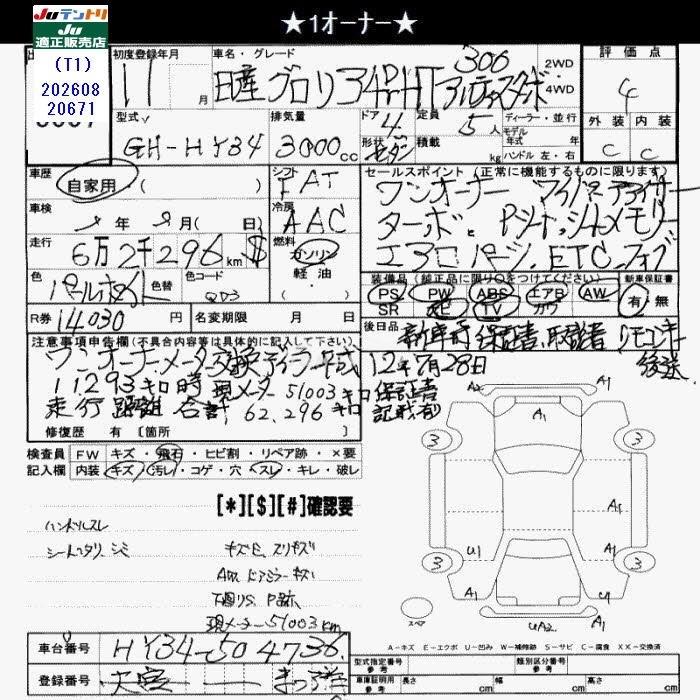 ★1オーナー★
Juテントリ
Ju
適正販売店
(T1)
202608
20671
初度登録年月
11 月
車名・グレード
300
日産 グロリア 4Dr HT アルティマターボ
2WD
4WD
評価点
4
外装 内装
C C
型式
GH-HY34
排気量
3000 cc
ドア 4
形状 セダン
定員 5 人
積載 kg
ディーラー・並行
モデル
年式 年
ハンドル 左・右
車歴
自家用 ( )
シフト
FAT
車検
年 月( 日)
冷房
AAC
走行
6万2千296 km $
燃料
ガソリン
軽油
色
パールホワイト
色替
色コード
QD3
R券 14030 円
名変期限 月 日
セールスポイント(正常に機能するものに限ります)
ワンオーナー
ターボ Pシート シートメモリー
エアロパーツ、ETC、フォグ
装備品(純正品に限り○をつけてください)
PS PW ABS エアB AW
SR TV カワ
新車保証書
有・無
後日品
新車時保証書、取説書 リモコンキー
後送
注意事項申告欄(不具合内容等は具体的に記入して下さい)
ワンオーナーメーター交換ディーラー平成12年7月28日
11,293キロ時 現メーター51003キロ 保証書
走行距離合計 62,296キロ 記載有
修復歴 有 [箇所
検査員
記入欄
FW キズ・飛石・ヒビ割・リペア跡・×要
内装 キズ・汚れ・コゲ・穴・スレ・キレ・破レ
[*][$][#]確認要
ハンドルスレ
シート・シミ
キズE、スリキズ
ドアミラーキズ
下廻りS、P跡
現メーター51003km
A2 A1
A1
3 3
A1
U1 A1
3 3
A1 U1
UA2
スペア
A-キズ E-エクボ U-凹み W-補修跡 S-サビ C-腐食 XX-交換済
車台番号 HY34-504736
登録番号 大宮
型式指定番号
参考
類別区分番号
参考
車庫証明用
参考
長さ cm
幅 cm
高さ cm